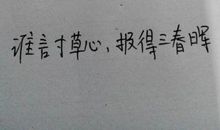 谁言寸草心，报得三春晖